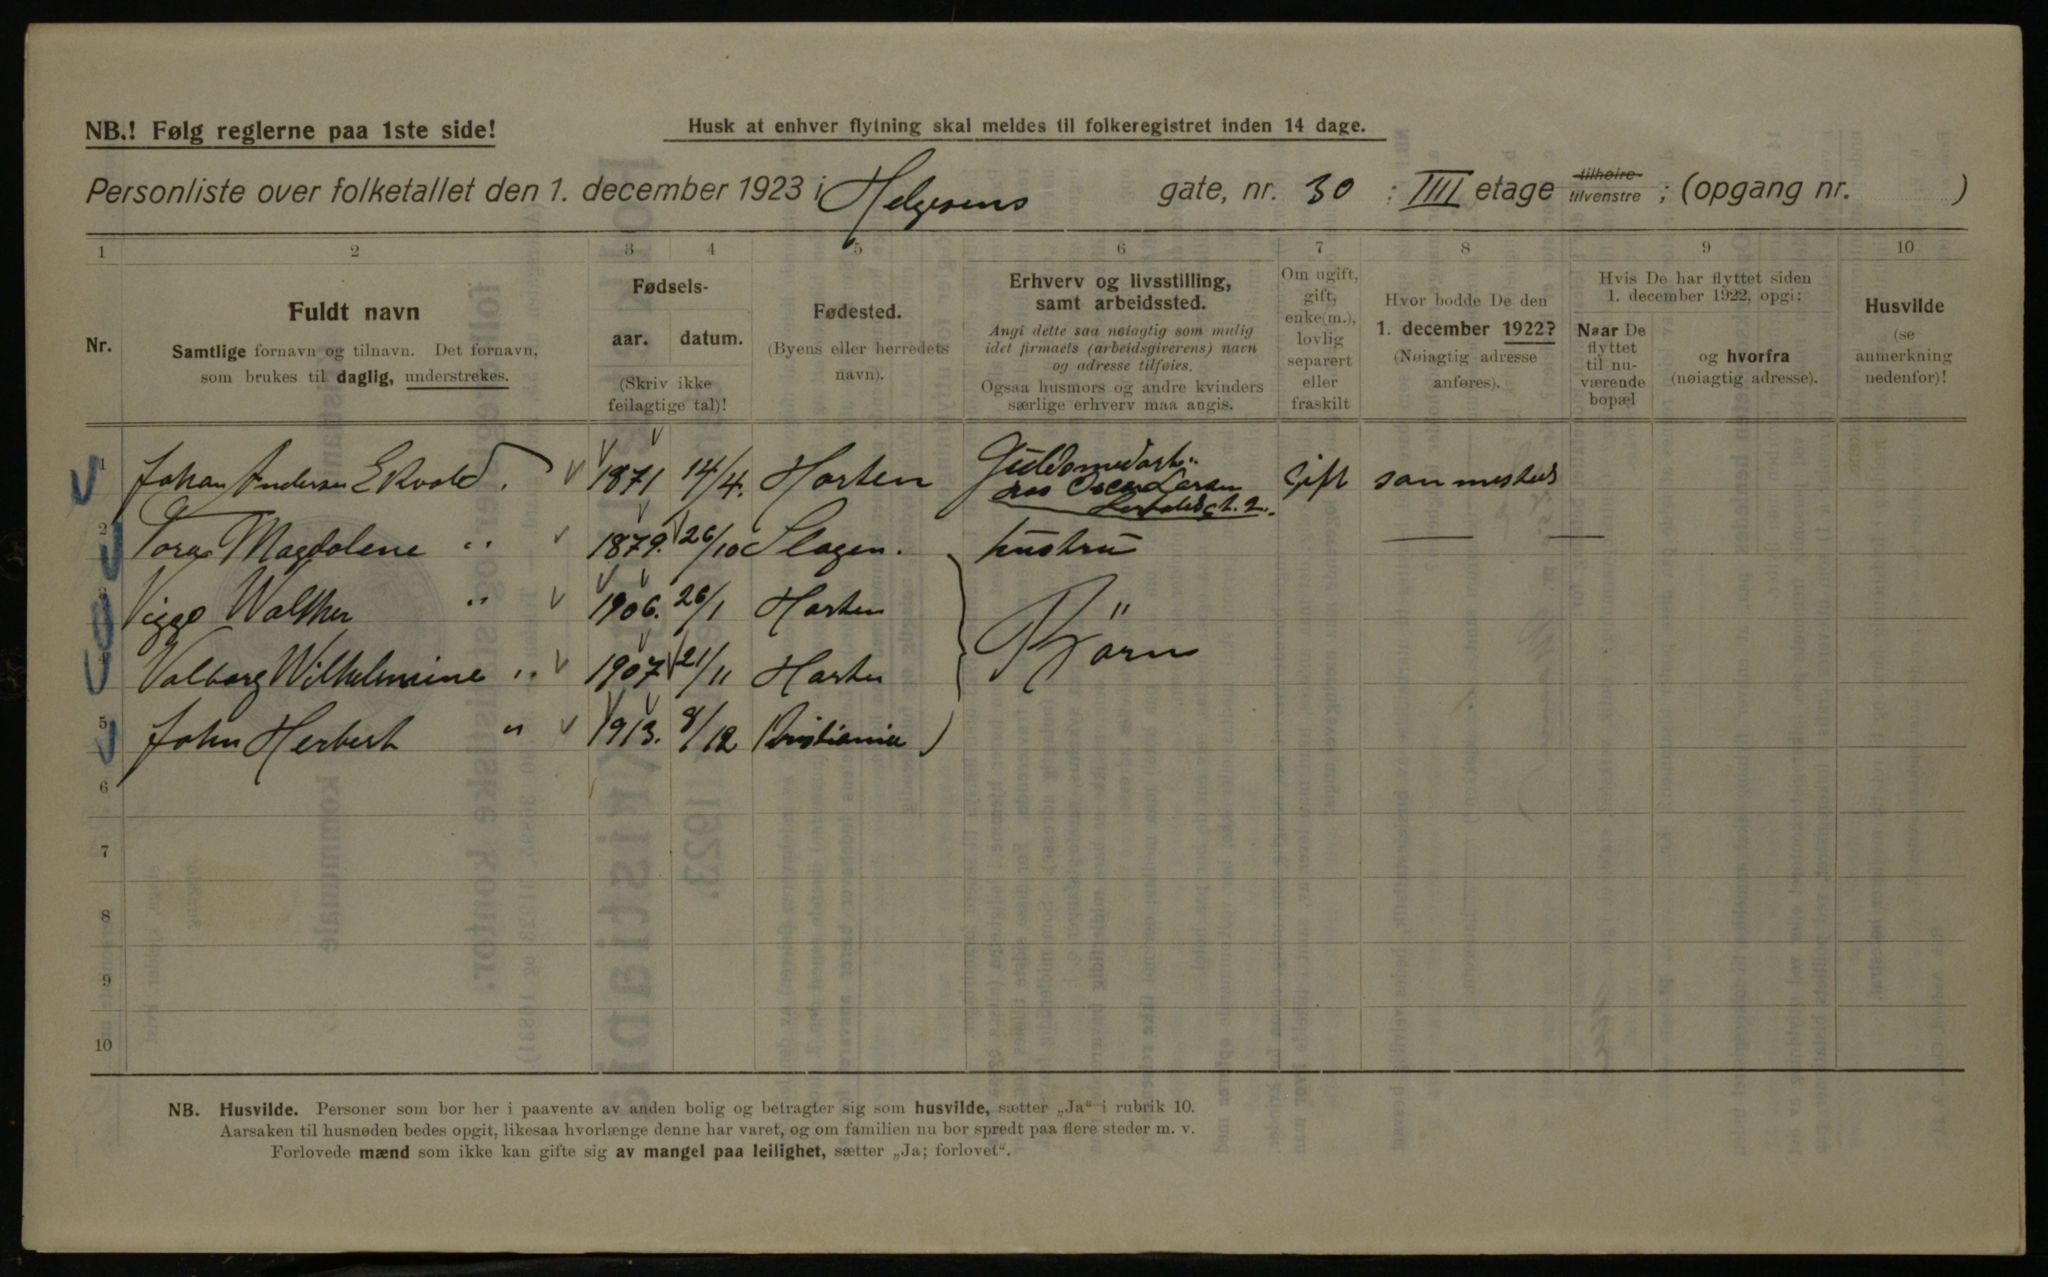 NB.! Følg reglerne paa 1ste side!
Husk at enhver flytning skal meldes til folkeregistret inden 14 dage.
Personliste over folketallet den 1. december 1923 i Helgesens gate, nr. 30 : III etage tilhøire tilvenstre ; (opgang nr. )
1 2 3 4 5 6 7 8 9 10
Nr.
Fuldt navn
Samtlige fornavn og tilnavn. Det fornavn,
som brukes til daglig, understrekes.
Fødsels-
aar. datum.
(Skriv ikke
feilagtige tal)!
Fødested.
(Byens eller herredets
navn).
Erhverv og livsstilling,
samt arbeidssted.
Angi dette saa nøiagtig som mulig
idet firmaets (arbeidsgiverens) navn
og adresse tilføies.
Ogsaa husmors og andre kvinders
særlige erhverv maa angis.
Om ugift,
gift,
enke(m.),
lovlig
separert
eller
fraskilt
Hvor bodde De den
1. december 1922?
(Nøiagtig adresse
anføres).
Hvis De har flyttet siden
1. december 1922, opgi:
Naar De
flyttet
til nu-
værende
bopæl
og hvorfra
(nøiagtig adresse).
Husvilde
(se
anmerkning
nedenfor)!
1 Johan Andersen Ekvold. 1871 14/4. Horten Gift sammesteds
2 Tora Magdalene " 1879. 26/10 Slagen. hustru
3 Viggo Walther " 1906. 26/1 Horten
4 Valborg Wilhelmine " 1907 21/11 Horten Börn
5 John Herbert " 1913. 8/12 Kristiania
6
7
8
9
10
NB. Husvilde. Personer som bor her i paavente av anden bolig og betragter sig som husvilde, sætter „Ja" i rubrik 10.
Aarsaken til husnøden bedes opgit, likesaa hvorlænge denne har varet, og om familien nu bor spredt paa flere steder m. v.
Forlovede mænd som ikke kan gifte sig av mangel paa leilighet, sætter „Ja; forlovet".